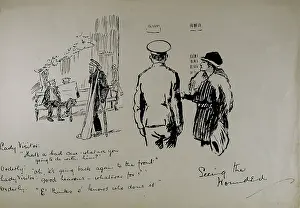 Lady Visitor:
"That's a bad case - what are you going to do with him?"
Orderly: "Oh 'e's going back again to the front"
Lady Visitor: "Good heavens - whatever for?"
Orderly: "'E thinks 'e knows who done it"
Seeing the Wounded